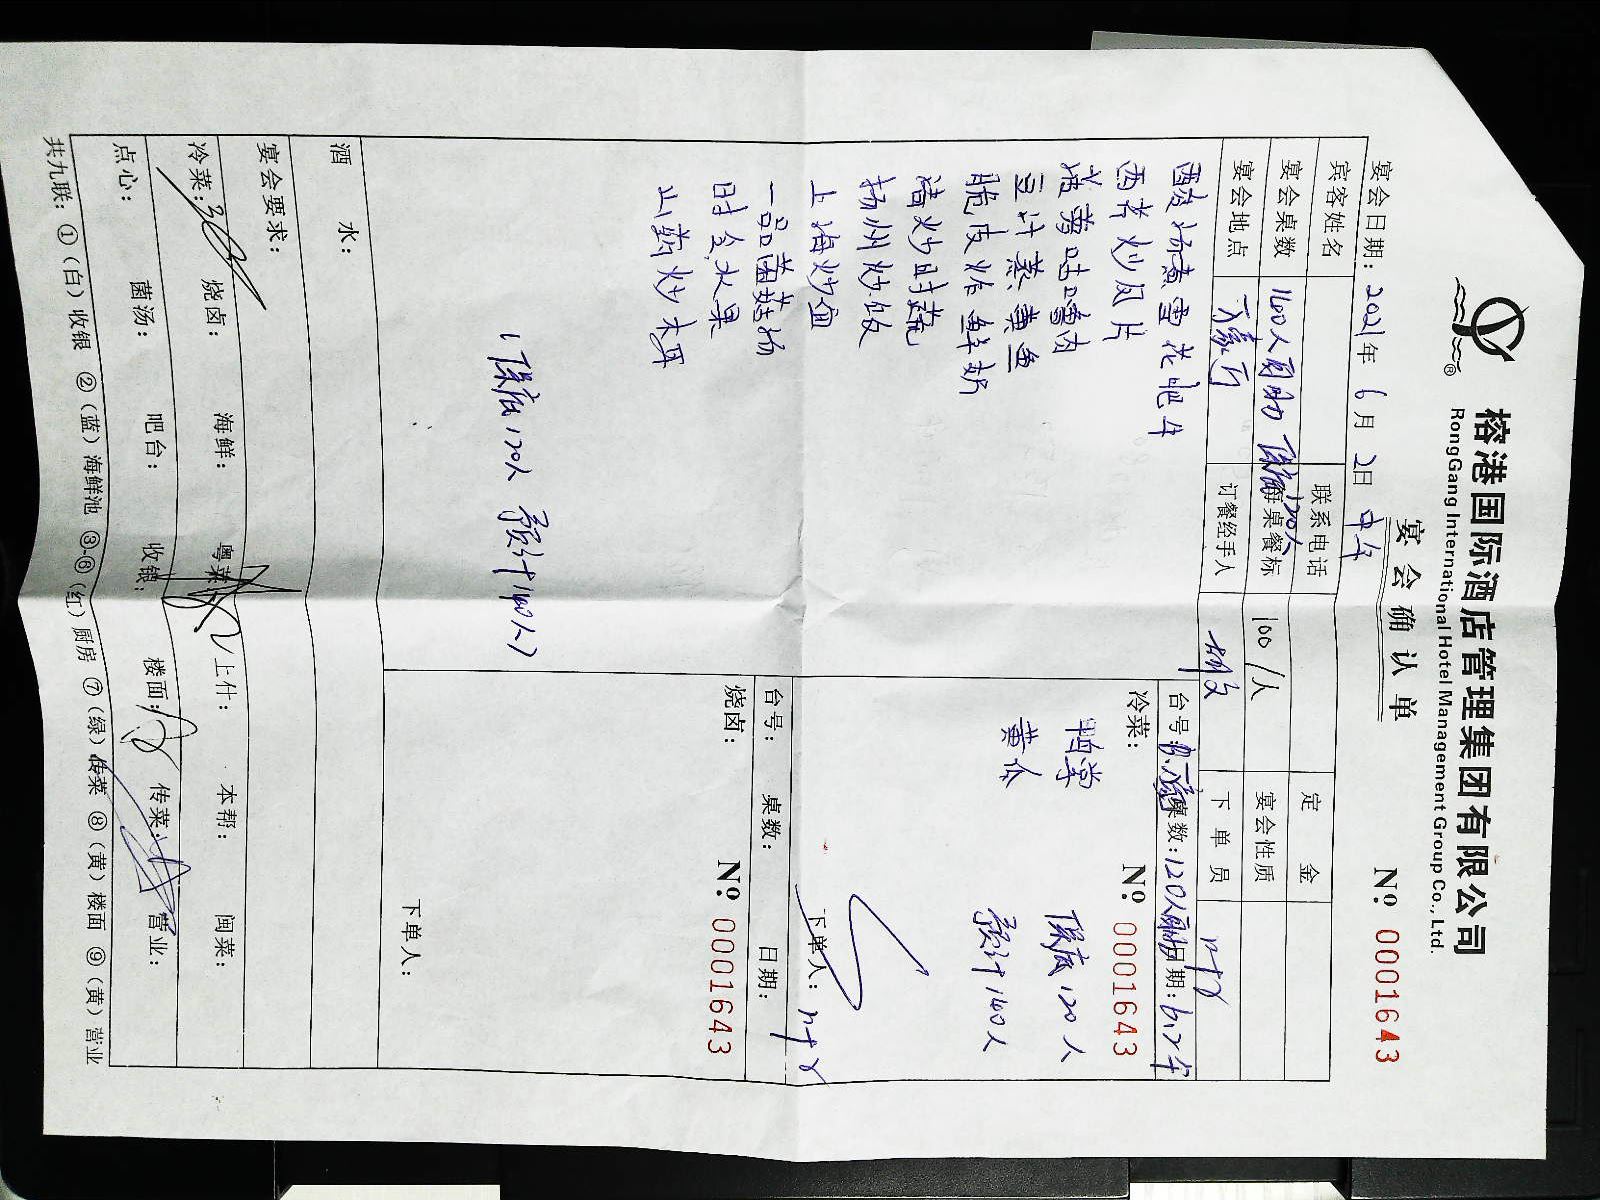 榕港国际酒店管理集团有限公司
RongGang International Hotel Management Group Co., Ltd.
宴会确认单
№ 0001643
宴会日期：2021年6月2日 中午
宾客姓名 联系电话 定金
宴会桌数 140人自助 保底120人 每桌餐标 100/人 宴会性质
宴会地点 订餐经手人 下单员
西芹炒凤片
菠萝咕噜肉
豆豉蒸黄鱼
脆皮炸鲜奶
清炒时蔬
扬州炒饭
上海炒面
一品菌菇汤
时令水果
山药炒木耳
(保底120人 预计140人)
台号： 桌数：120人自助 日期：6.2午
冷菜： № 0001643
黄瓜
保底120人
预计140人
下单人：
台号： 桌数： 日期：
烧卤： № 0001643
下单人：
酒水：
宴会要求：
冷菜： 烧卤： 海鲜： 粤菜： 上什： 本帮： 闽菜：
点心： 菌汤： 吧台： 收银： 楼面： 传菜： 营业：
共九联：①（白）收银 ②（蓝）海鲜池 ③-⑥（红）厨房 ⑦（绿）传菜 ⑧（黄）楼面 ⑨（黄）营业